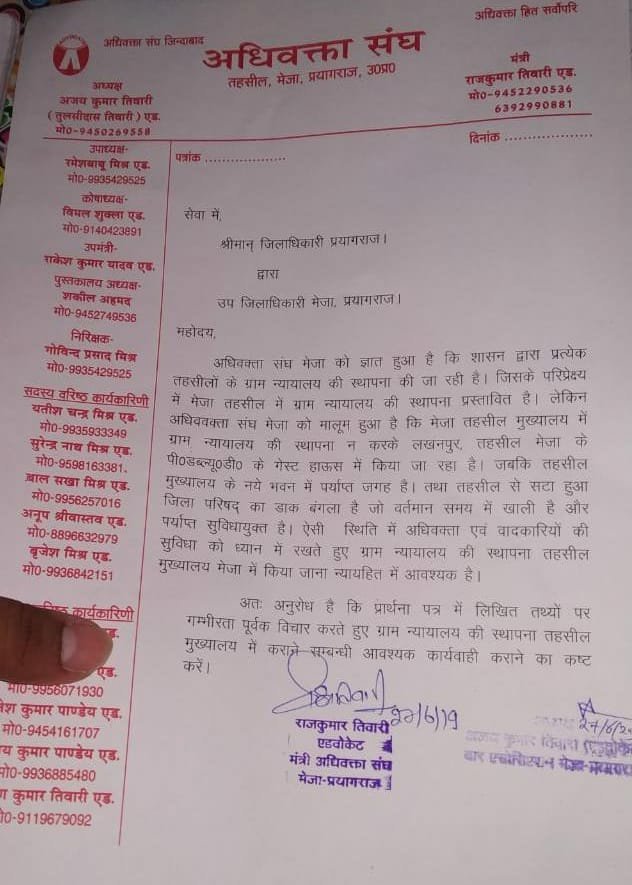 अधिवक्ता संघ जिन्दाबाद
अधिवक्ता हित सर्वोपरि
अधिवक्ता संघ
तहसील, मेजा, प्रयागराज, उ0प्र0
अध्यक्ष
अजय कुमार तिवारी
(तुलसीदास तिवारी) एड.
मो0-9450269558
मंत्री
राजकुमार तिवारी एड.
मो0-9452290536
6392990881
उपाध्यक्ष-
रमेशबाबू मिश्र एड.
मो0-9935429525
कोषाध्यक्ष-
विमल शुक्ला एड.
मो0-9140423891
उपमंत्री-
राकेश कुमार यादव एड.
पुस्तकालय अध्यक्ष-
शकील अहमद
मो0-9452749536
निरिक्षक-
गोविन्द प्रसाद मिश्र
मो0-9935429525
सदस्य वरिष्ठ कार्यकारिणी
यतीश चन्द्र मिश्र एड.
मो0-9935933349
सुरेन्द्र नाथ मिश्र एड.
मो0-9598163381.
बाल सखा मिश्र एड.
मो0-9956257016
अनूप श्रीवास्तव एड.
मो0-8896632979
बृजेश मिश्र एड.
मो0-9936842151
कार्यकारिणी
एड.
मो0-9956071930
कुमार पाण्डेय एड.
मो0-9454161707
कुमार पाण्डेय एड.
मो0-9936885480
कुमार तिवारी एड.
मो0-9119679092
पत्रांक ....................
दिनांक ....................
सेवा में,
श्रीमान् जिलाधिकारी प्रयागराज।
द्वारा
उप जिलाधिकारी मेजा, प्रयागराज।
महोदय,
अधिवक्ता संघ मेजा को ज्ञात हुआ है कि शासन द्वारा प्रत्येक
तहसीलों के ग्राम न्यायालय की स्थापना की जा रही है। जिसके परिप्रेक्ष्य
में मेजा तहसील में ग्राम न्यायालय की स्थापना प्रस्तावित है। लेकिन
अधिववक्ता संघ मेजा को मालूम हुआ है कि मेजा तहसील मुख्यालय में
ग्राम न्यायालय की स्थापना न करके लखनपुर, तहसील मेजा के
पी0डब्ल्यू0डी0 के गेस्ट हाऊस में किया जा रहा है। जबकि तहसील
मुख्यालय के नये भवन में पर्याप्त जगह है। तथा तहसील से सटा हुआ
जिला परिषद् का डाक बंगला है जो वर्तमान समय में खाली है और
पर्याप्त सुविधायुक्त है। ऐसी स्थिति में अधिवक्ता एवं वादकारियों की
सुविधा को ध्यान में रखते हुए ग्राम न्यायालय की स्थापना तहसील
मुख्यालय मेजा में किया जाना न्यायहित में आवश्यक है।
अतः अनुरोध है कि प्रार्थना पत्र में लिखित तथ्यों पर
गम्भीरता पूर्वक विचार करते हुए ग्राम न्यायालय की स्थापना तहसील
मुख्यालय में कराने सम्बन्धी आवश्यक कार्यवाही कराने का कष्ट
करें।
राजकुमार तिवारी
एडवोकेट
मंत्री अधिवक्ता संघ
मेजा-प्रयागराज
अजय कुमार तिवारी
बार एसोसिएशन मेजा-